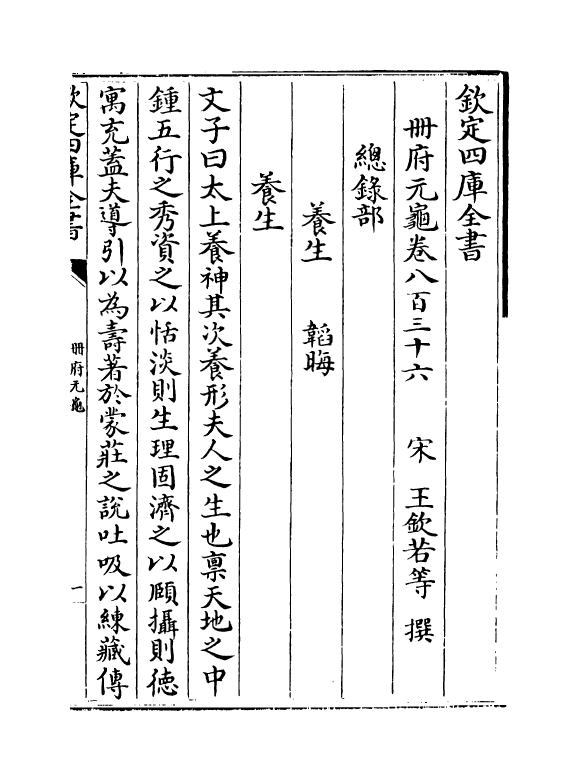 欽定四庫全書
冊府元龜卷八百三十六　　宋　王欽若等　撰
總錄部
養生　　韜晦
養生
文子曰太上養神其次養形夫人之生也禀天地之中
鍾五行之秀資之以恬淡則生理固濟之以頤攝則德
寓充蓋夫導引以為壽著於蒙莊之說吐吸以練藏傳
欽定四庫全書
冊府元龜
一